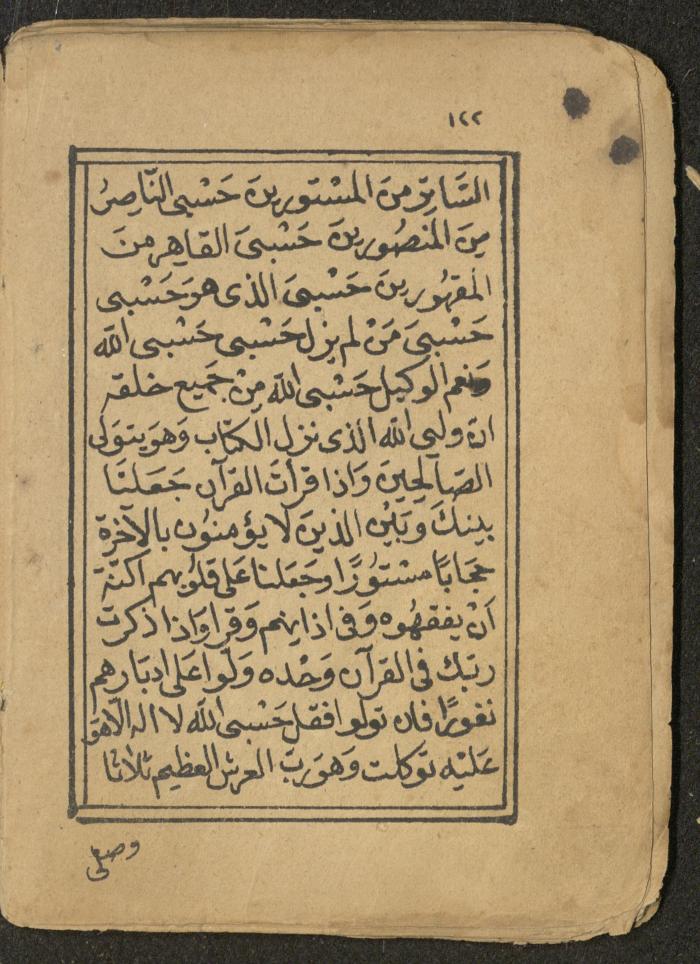 ١٢٢
السَّاتِرُ مِنَ المَسْتورينَ حَسْبِى النَّاصِرُ
مِنَ المَنصُورينَ حَسْبِىَ القَاهِر مِنَ
المقهُورينَ حَسْبِىَ الذى هوَ حَسْبِى
حَسْبِىَ مَنْ لم يزل حَسْبِى حَسْبِى الله
ونعم الوكيل حَسْبِى الله مِنْ جَميع خلقه
ان وليي الله الذى نزل الكتاب وَهوَ يتوَلى
الصَالحِينَ وَاذا قرأتَ القرآن جَعَلنَا
بينكَ وَبَيْن الذينَ لا يؤمنوُن بالآخرة
حجَابًا مسْتوُرًا وجَعَلنا عَلى قلوُبهم اكنّة
اَنْ يفقهوُه وَفى اذانهم وَقرا وَاذا ذكرت
ربّك فى القرآن وَحْده وَلّوا عَلى ادبَارهم
نفورًا فان تولوا فقل حَسْبِى الله لا اله الّا هوَ
عَليْه توَكلت وَهوَ ربّ العرش العظيم ثلاثا
وصلى